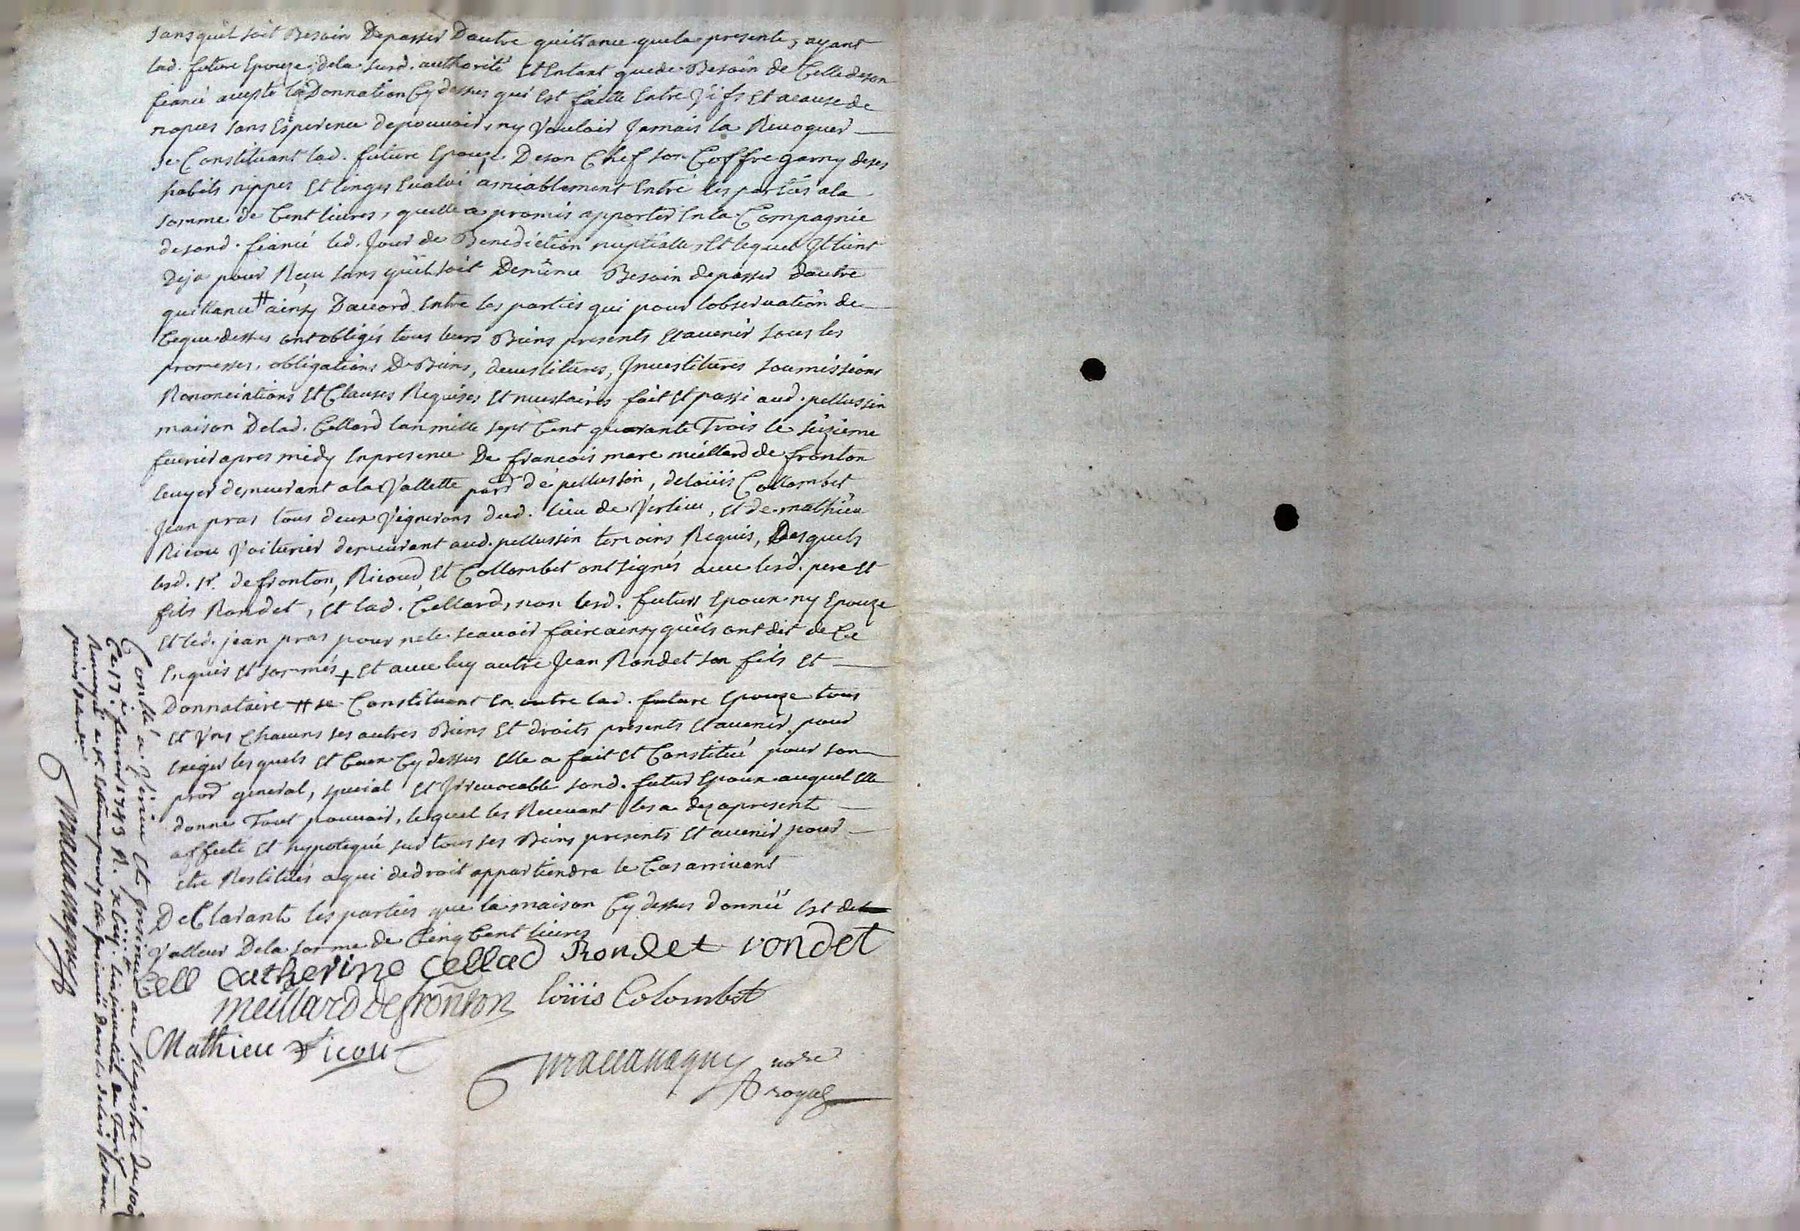 sans quil soit Besoin Depasser Dautre quittance quela presente, ayant
lad. future Epouze, dela susd. authorité Et Entant quede Besoin de Celledeson
fiancé accepté la Donnation Cy dessus qui Est faitte Entre Vifs Et acause de
nopces sans Esperence depouvoir, ny Vouloir Jamais la Revoquer
se Constituant lad. future Epouze Deson Chef son Coffre garny deses
habits nippes Et linges Evalué amiablement Entre les parties ala
somme de Cent livres, quelle a promis apporter En la Compagnie
desond. fiancé led. Jour de Benediction nuptialle, Et lequel Il tient
Deja pour Reçu sans quil soit Demême Besoin depasser dautre
quittance # ainsy Daccord Entre les parties qui pour lobservation de
Ceque dessus ont obligés tous leurs Biens presents Et avenir sous les
promesses, obligations De Biens, devestitures, Investitures soumissions
Renonciations Et Clauses Requises Et necessaires fait Et passé aud. pellussin
maison Delad. Cellard lan mille sept Cent quarante Trois le seizieme
fevrier apres midy En presence De francois marc meillard de fronton
Ecuyer demeurant ala Vallette parr. de pellussin, de loüis Collombet
Jean pras tous deux Vignerons dud. lieu de Verlieu, Et de mathieu
Ricou Voiturier demeurant aud. pellussin temoins Requis, Desquels
lesd. sr. de fronton, Ricoud, Et Collombet ont signés avec lesd. pere Et
fils Rondet, Et lad. Cellard, non lesd. futurs Epoux ny Epouze
Et led. jean pras pour ne le scavoir faire ainsy quils ont dit de Ce
Enquis Et sommés + Et avec luy autre Jean Rondet son fils Et
Donnataire # se Constituant En outre lad. future Epouze tous
Et Vns Chacuns ses autres Biens Et droits presents Et avenir, pour
Exiger lesquels Et Ceux Cy dessus Elle a fait Et Constitué pour son
procr general, special Et Irrevocable sond. futur Epoux auquel Elle
donne Tout pouvoir, lequel les Recevant les a des apresent
affecté Et hypotequé sur tous ses Biens presents Et avenir pour
Etre Restitués a qui de droit appartiendra le Cas arrivant
Declarant les parties que la maison Cy dessus donnée Est de
Valleur Dela somme de Cinq Cent livres
Catherine Cellard Rondet rondet
meillard de fronton loüis Colombet
Mathieu Ricout
mallanaque nore
royal
Conllé a Virieu Et Insinué au Registre du
Ce 17e fevrier 1743 R. six livres